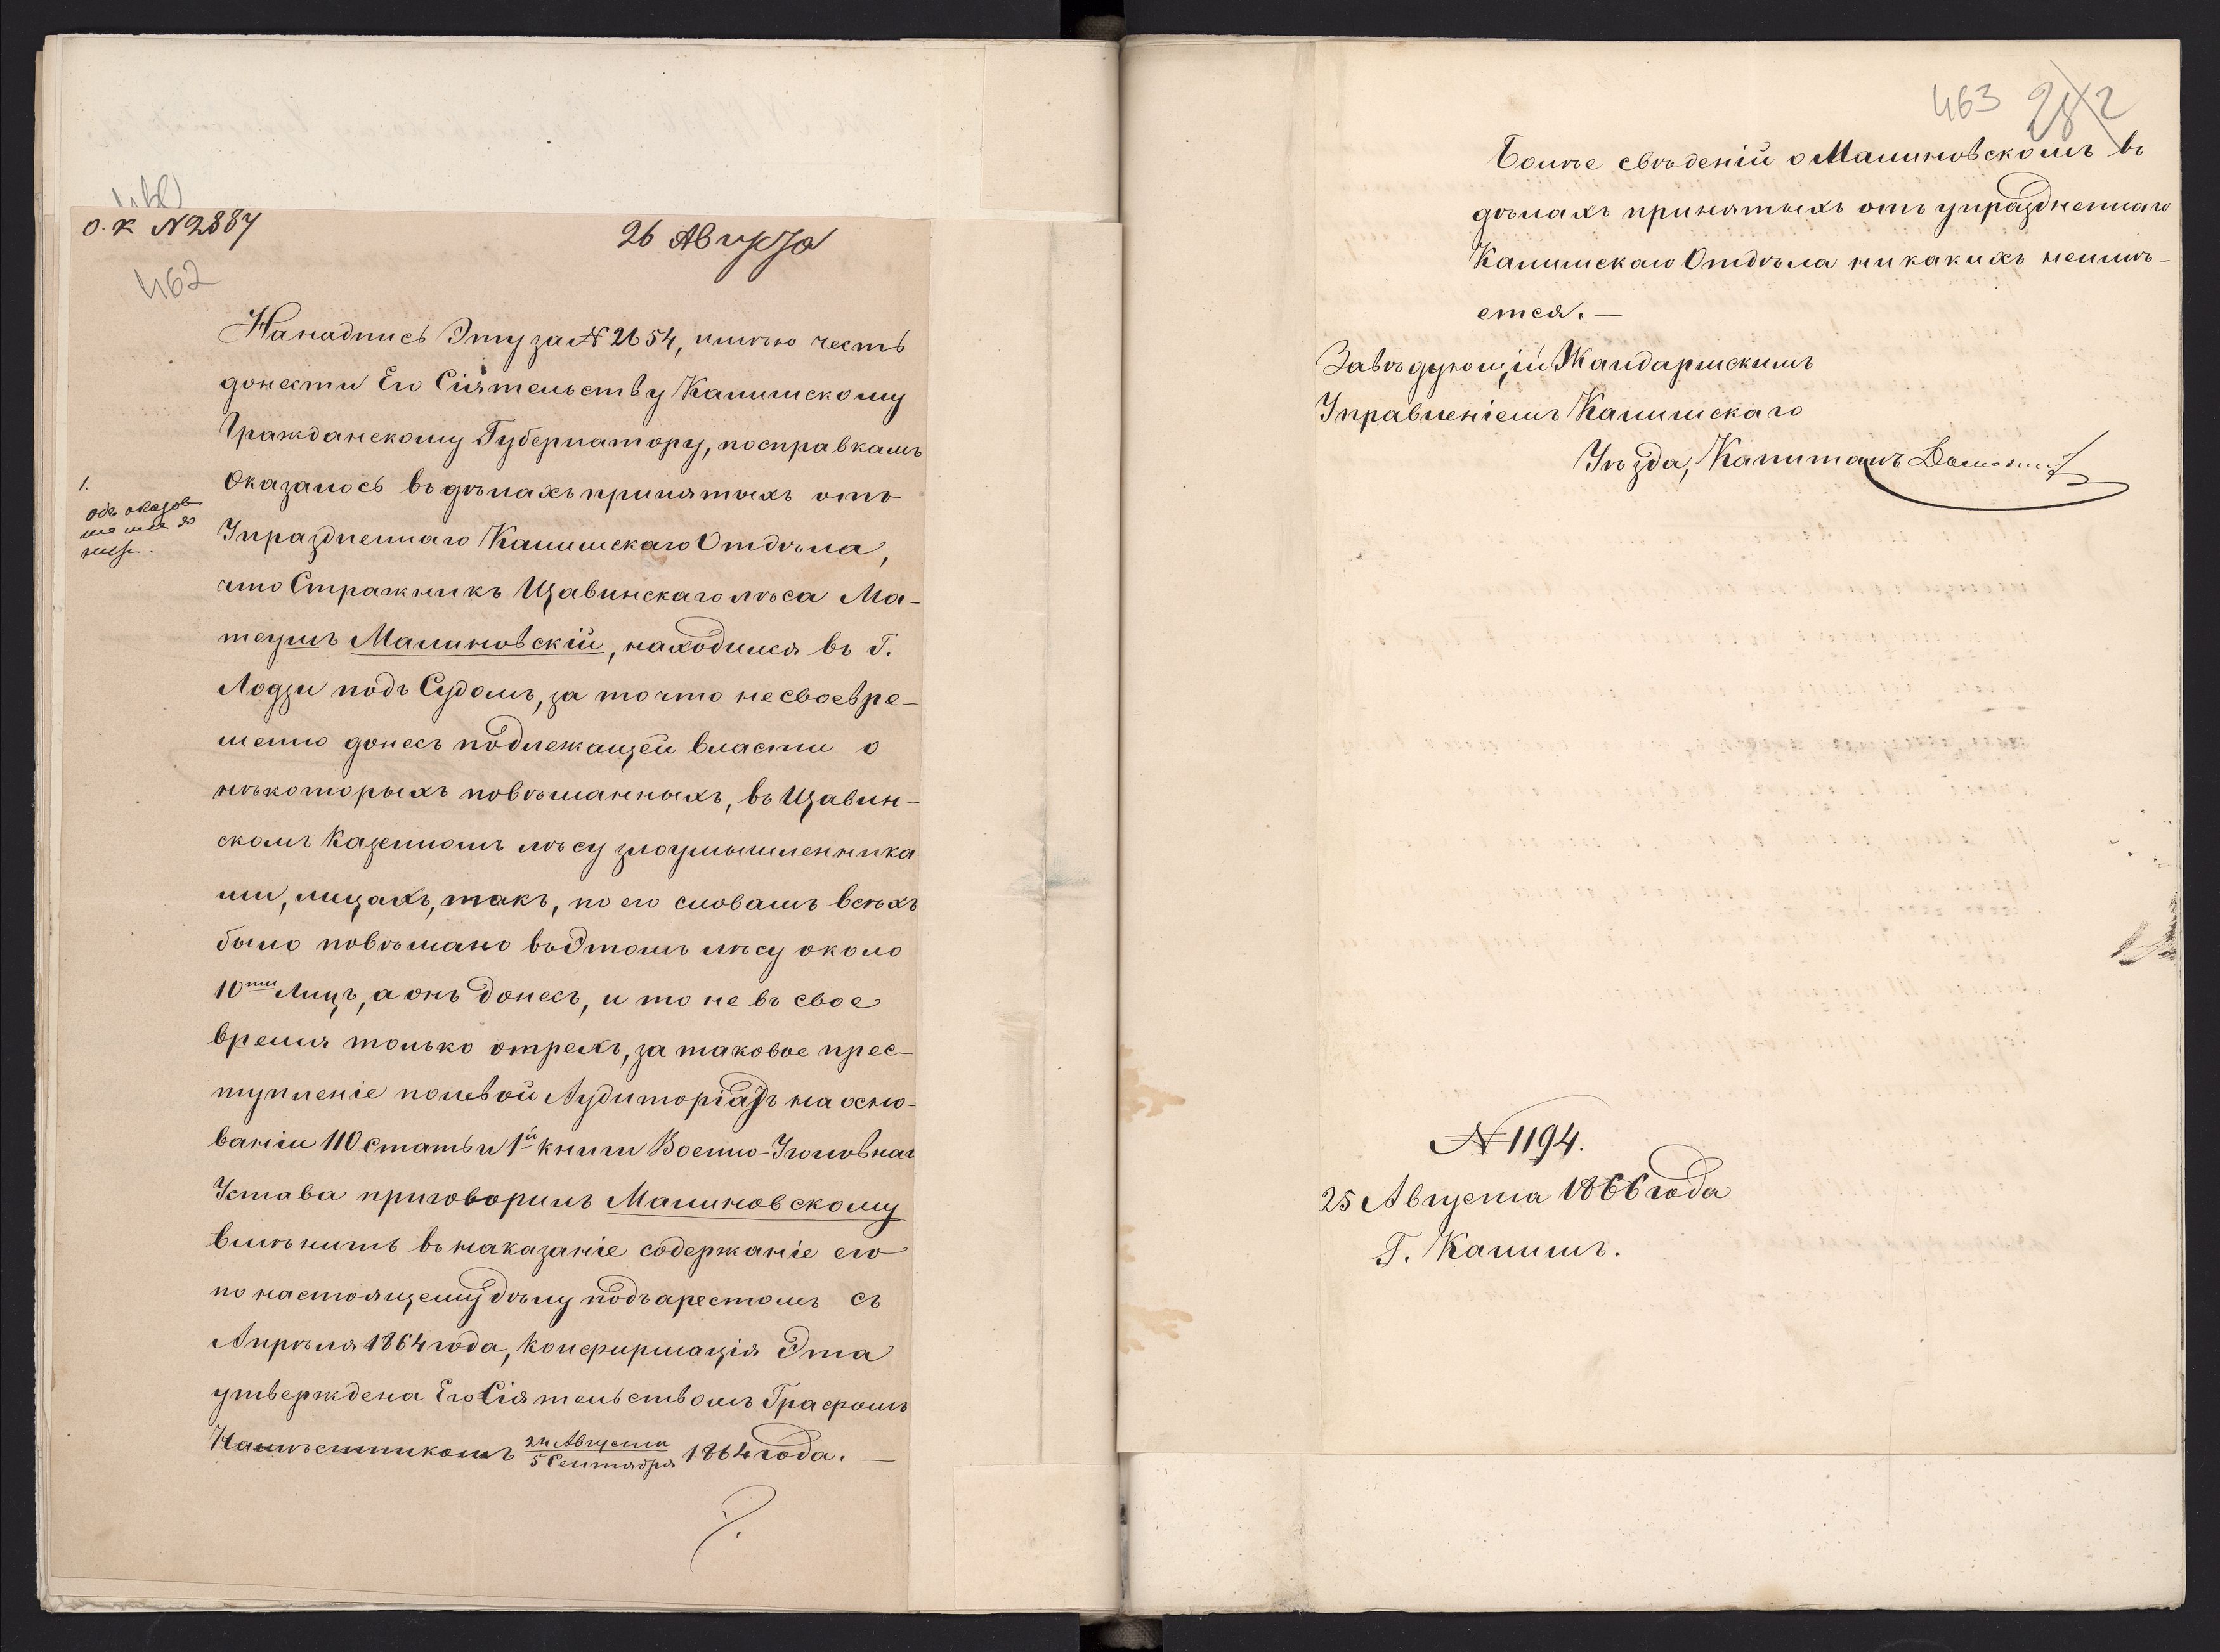 О. К. №2887
26 Августа
462
Нанадпись Эту за № 2654, имѣю честь
донести Его Сіятельству Калишскому
Гражданскому Губернатору, посправкамъ
Оказалось въ дѣлахъ принятыхъ отъ
Упраздненнаго Калишскаго Отдѣла,
что Стражникъ Щавинскаго лѣса Ма-
теушъ Малиновскій, находился въ Г.
Лодзи подъ Судомъ, за то что несвоевре-
менно донесъ подлежащей власти о
нѣкоторыхъ повѣшанныхъ, въ Щавин-
скомъ Казенномъ лѣсу злоумышленника
ми, лицахъ, такъ, по его словамъ всѣхъ
было повѣшано въ Этомъ лѣсу около
10ти Лицъ, а онъ донесъ, и то не въ свое
время только отрехъ, за таковое прес-
тупленіе полевой Аудиторіатъ на осно-
ваніи 110 статьи 1й книги Военно-Уголовнаг
Устава приговорилъ Малиновскому
вмѣнить въ наказаніе содержаніе его
по настоящему дѣлу подъ арестомъ съ
Апрѣля 1864 года, Конфирмація Эта
утверждена Его Сіятельствомъ Графомъ
Намѣстникомъ 24 Августа / 5 Сентября 1864 года. —
1.
463 282
Болѣе свѣденій о Малиновскомъ въ
дѣлахъ принятыхъ отъ упраздненнаго
Калишскаго Отдѣла никакихъ неимѣ-
ется. —
Завѣдующій Жандармскимъ
Управленіемъ Калишскаго
Уѣзда, Капитанъ
№ 1194.
25 Августа 1866 года
Г. Калишъ.